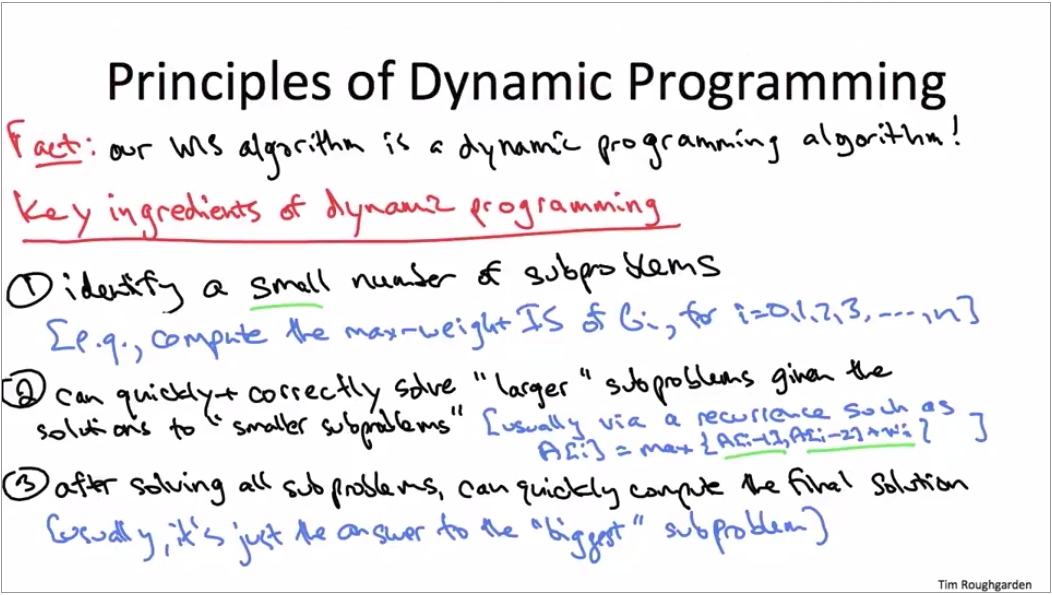 Principles of Dynamic Programming
Fact: our WIS algorithm is a dynamic programming algorithm!
Key ingredients of dynamic programming
① identify a small number of subproblems
[e.g., compute the max-weight IS of Gi, for i=0,1,2,3,...,n]
② can quickly + correctly solve "larger" subproblems given the
solutions to "smaller subproblems" [usually via a recurrence such as
A[i] = max{A[i-1], A[i-2]+wi} ]
③ after solving all subproblems, can quickly compute the final solution
[usually, it's just the answer to the "biggest" subproblem]
Tim Roughgarden